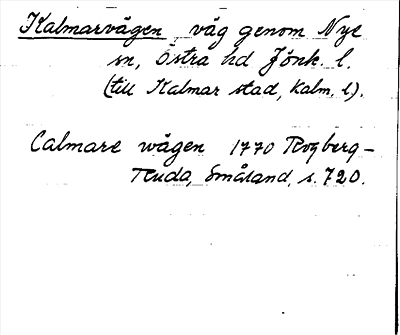 Kalmarvägen väg genom Nye
sn, Östra hd Jönk. l.
(till Kalmar stad, Kalm. l).
Calmare wägen 1770 Rogberg-
Ruda, Småland, s. 720.